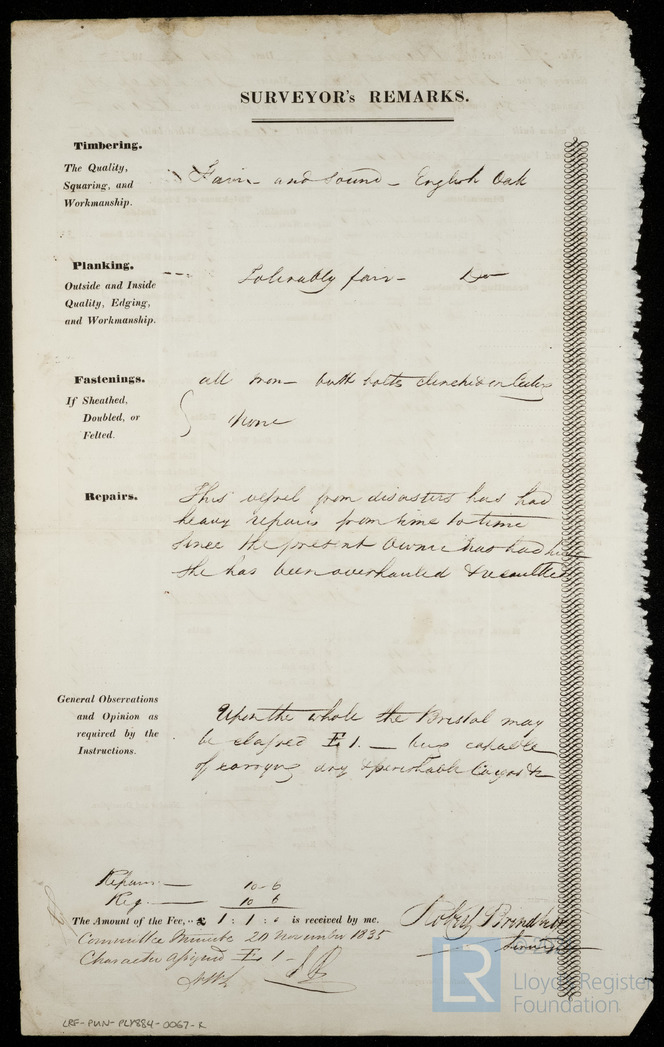 SURVEYOR's REMARKS.
Timbering.
The Quality,
Squaring, and
Workmanship.
Fair - and sound - English Oak
Planking.
Outside and Inside
Quality, Edging,
and Workmanship.
Tolerably fair - Do
Fastenings.
If Sheathed,
Doubled, or
Felted.
all Iron - butt bolts clenched on
None
Repairs.
This vessel from disasters has had
heavy repairs from time to time
Since the present Owner has had her
She has been overhauled &
General Observations
and Opinion as
required by the
Instructions.
Upon the whole the Bristol may
be classed E 1. - being capable
of carrying dry & perishable Cargos &c
Repairs - 10-6
Reg. - 10 6
The Amount of the Fee, £ 1 : 1 : 0 is received by me.
Robert
Committee Minute 20 November 1835
Character assigned E 1 -
LR
Lloyd's Register
Foundation
LRF-PUN-PLY884-0067-R